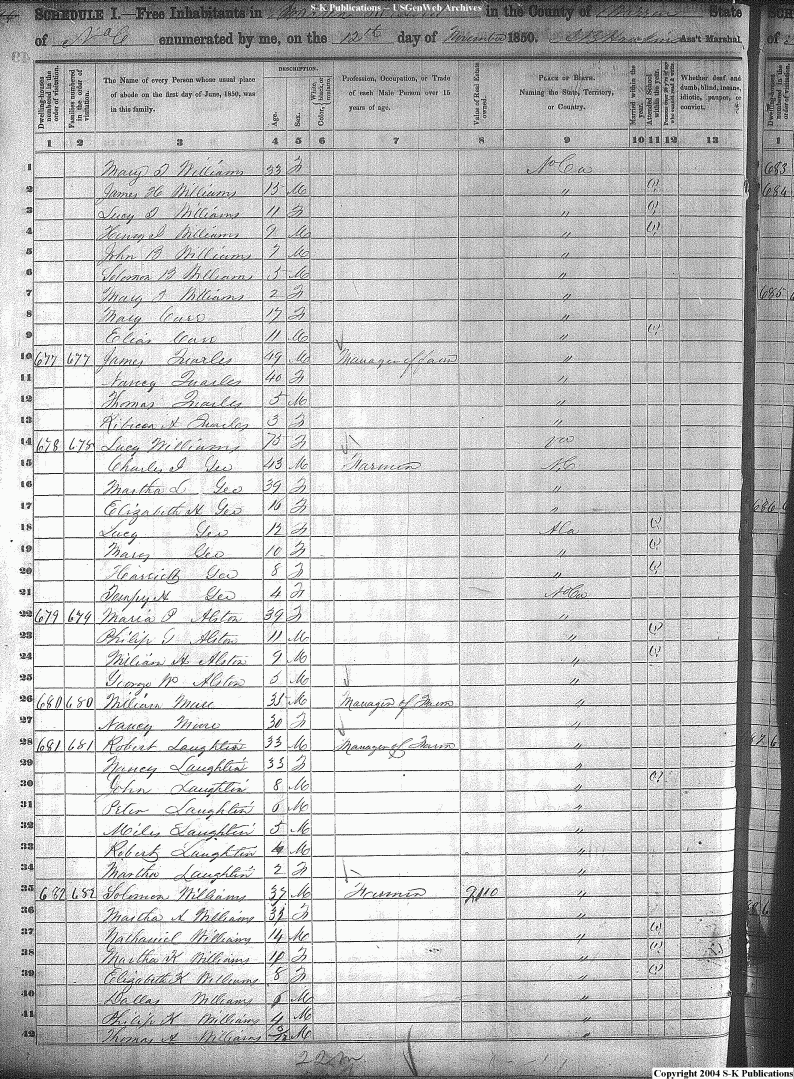 S-K Publications -- USGenWeb Archives
SCHEDULE I.—Free Inhabitants in in the County of State
of enumerated by me, on the 12th day of 1850. Ass't Marshal.
Dwelling-houses numbered in the order of visitation. Families numbered in the order of visitation. The Name of every Person whose usual place of abode on the first day of June, 1850, was in this family. DESCRIPTION. Age. Sex. Color Profession, Occupation, or Trade of each Male Person over 15 years of age. Value of Real Estate owned. PLACE OF BIRTH. Naming the State, Territory, or Country. Married within the year. Attended School within the year. Whether deaf and dumb, blind, insane, idiotic, pauper, or convict.
1 2 3 4 5 6 7 8 9 10 11 12 13 1
1 Mary Williams 33 F No Ca 683
2 James H Williams 15 M " 684
3 Lucy Williams 11 F "
4 Henry Williams 9 M "
5 John B Williams 7 M "
6 Solomon B Williams 5 M "
7 Mary Williams 2 F " 685
8 Mary Carr 17 F "
9 Elias Carr 11 M "
10 677 677 James Quarles 49 M Manager of farm "
11 Nancy Quarles 40 F "
12 Thomas Quarles 5 M "
13 Rebecca A Quarles 3 F "
14 678 678 Lucy Williams 75 F
15 Charles Geo 43 M Farmer N.C
16 Martha L Geo 39 F "
17 Elizabeth A Geo 16 F " 686
18 Lucy Geo 12 F Ala
19 Mary Geo 10 F "
20 Harriett Geo 8 F "
21 Tempy A Geo 4 F No Ca
22 679 679 Maria P Alston 39 F "
23 Philip G Alston 11 M "
24 William A Alston 9 M "
25 George W Alston 5 M "
26 680 680 William Muse 35 M Manager of Farm "
27 Nancy Muse 30 F "
28 681 681 Robert Laughlin 33 M Manager of Farm "
29 Nancy Laughlin 33 F "
30 John Laughlin 8 M "
31 Peter Laughlin 6 M "
32 Miles Laughlin 5 M "
33 Robert Laughlin 4 M "
34 Martha Laughlin 2 F "
35 682 682 Solomon Williams 37 M Farmer "
36 Martha A Williams 32 F "
37 Nathaniel Williams 14 M "
38 Martha K Williams 10 F "
39 Elizabeth K Williams 8 F "
40 Dallas Williams 6 M "
41 Philip K Williams 4 M "
42 Thomas A Williams M "
Copyright 2004 S-K Publications